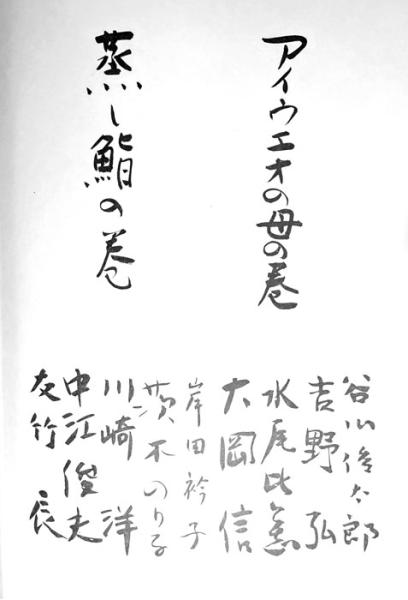 アイウエオの母の巻
蒸し鮨の巻
谷川俊太郎
吉野弘
水尾比呂志
大岡信
岸田衿子
茨木のり子
川崎洋
中江俊夫
友竹辰